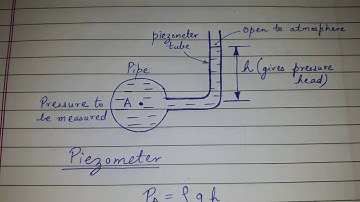 open to atmosphere
piezometer
tube
Pipe
h (gives pressure
head)
Pressure to
be measured
A
Piezometer
P_A = ρ g h